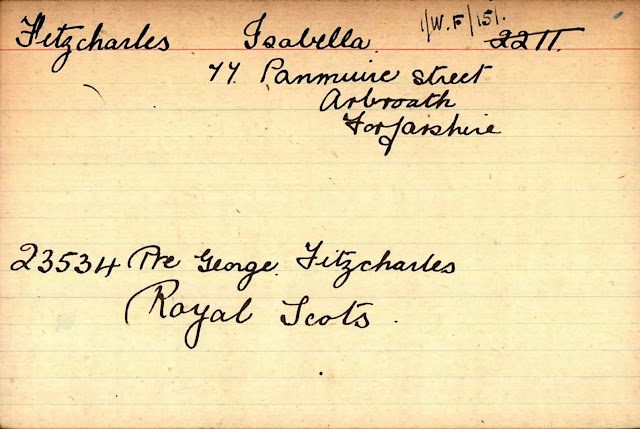 Fitzcharles Isabella. 1/W.F/151. 2211.
77. Panmuire Street
Arbroath
Forfarshire
23534 Pte George. Fitzcharles
Royal Scots.